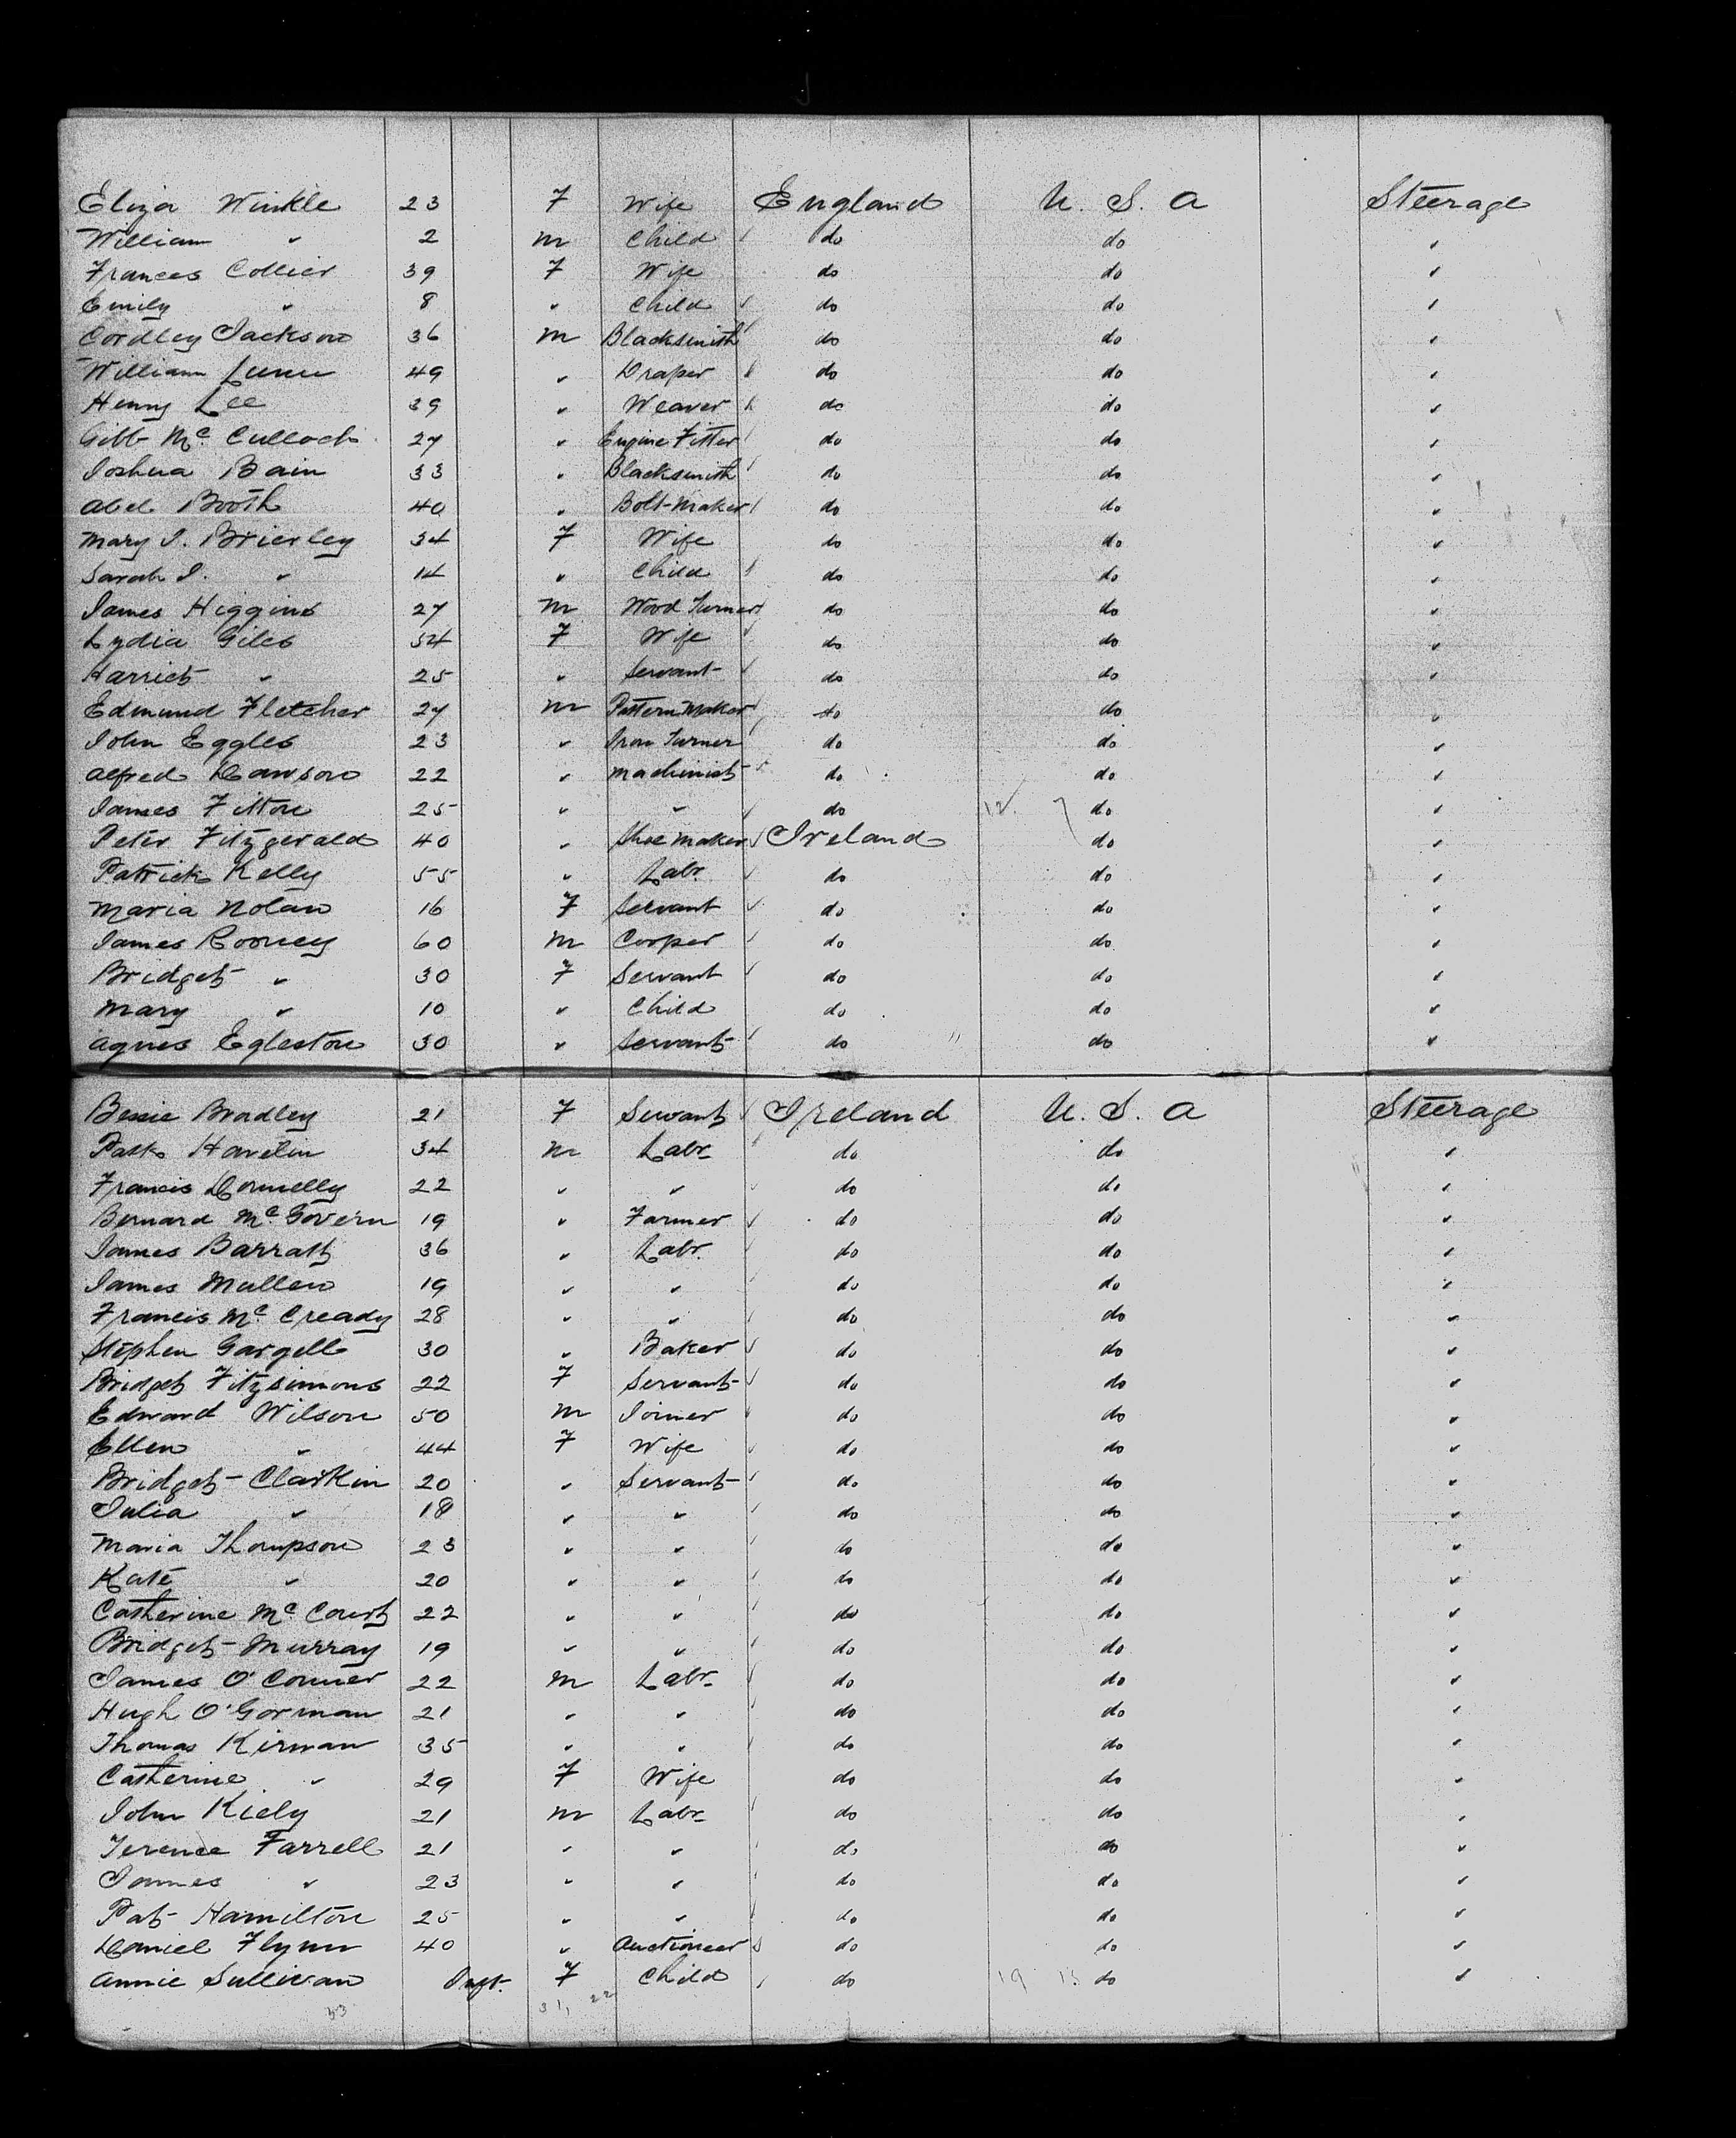 Eliza Winkle 23 F Wife England U. S. A Steerage
William " 2 M Child do do "
Frances Collier 39 F Wife do do "
Emily " 8 " Child do do "
Cordley Jackson 36 M Blacksmith do do "
William Lunn 49 " Draper do do "
Henry Lee 39 " Weaver do do "
Gibb McCulloch 27 " Engine Fitter do do "
Joshua Bain 33 " Blacksmith do do "
Abel Booth 40 " Bolt-Maker do do "
Mary J. Brierley 34 F Wife do do "
Sarah J. " 14 " Child do do "
James Higgins 27 M Wood Turner do do "
Lydia Giles 54 F Wife do do "
Harriet " 25 " Servant do do "
Edmund Fletcher 27 M Pattern Maker do do "
John Eggles 23 " Iron Turner do do "
Alfred Dawson 22 " Machinist do do "
James Fitton 25 " " do 12 7 do "
Peter Fitzgerald 40 " Shoemaker Ireland do "
Patrick Kelly 55 " Labr. do do "
Maria Nolan 16 F Servant do do "
James Rooney 60 M Cooper do do "
Bridget " 30 F Servant do do "
Mary " 10 " Child do do "
Agnes Egleston 30 " Servant do do "
Bessie Bradley 21 F Servant Ireland U. S. A Steerage
Patk Havelin 34 M Labr. do do "
Francis Donnelly 22 " " do do "
Bernard McGovern 19 " Farmer do do "
James Barratt 36 " Labr. do do "
James Mullen 19 " " do do "
Francis McCready 28 " " do do "
Stephen Gargell 30 " Baker do do "
Bridget Fitzsimons 22 F Servant do do "
Edward Wilson 50 M Joiner do do "
Ellen " 44 F Wife do do "
Bridget Clarkin 20 " Servant do do "
Julia " 18 " " do do "
Maria Thompson 23 " " do do "
Kate " 20 " " do do "
Catherine McCourt 22 " " do do "
Bridget Murray 19 " " do do "
James O'Conner 22 M Labr. do do "
Hugh O'Gorman 21 " " do do "
Thomas Kirwan 35 " " do do "
Catherine " 29 F Wife do do "
John Kiely 21 M Labr. do do "
Terence Farrell 21 " " do do "
James " 23 " " do do "
Pat Hamilton 25 " " do do "
Daniel Flynn 40 " Auctioneer do do "
Annie Sullivan Inft. F Child do 19 13 do "
53 31 22